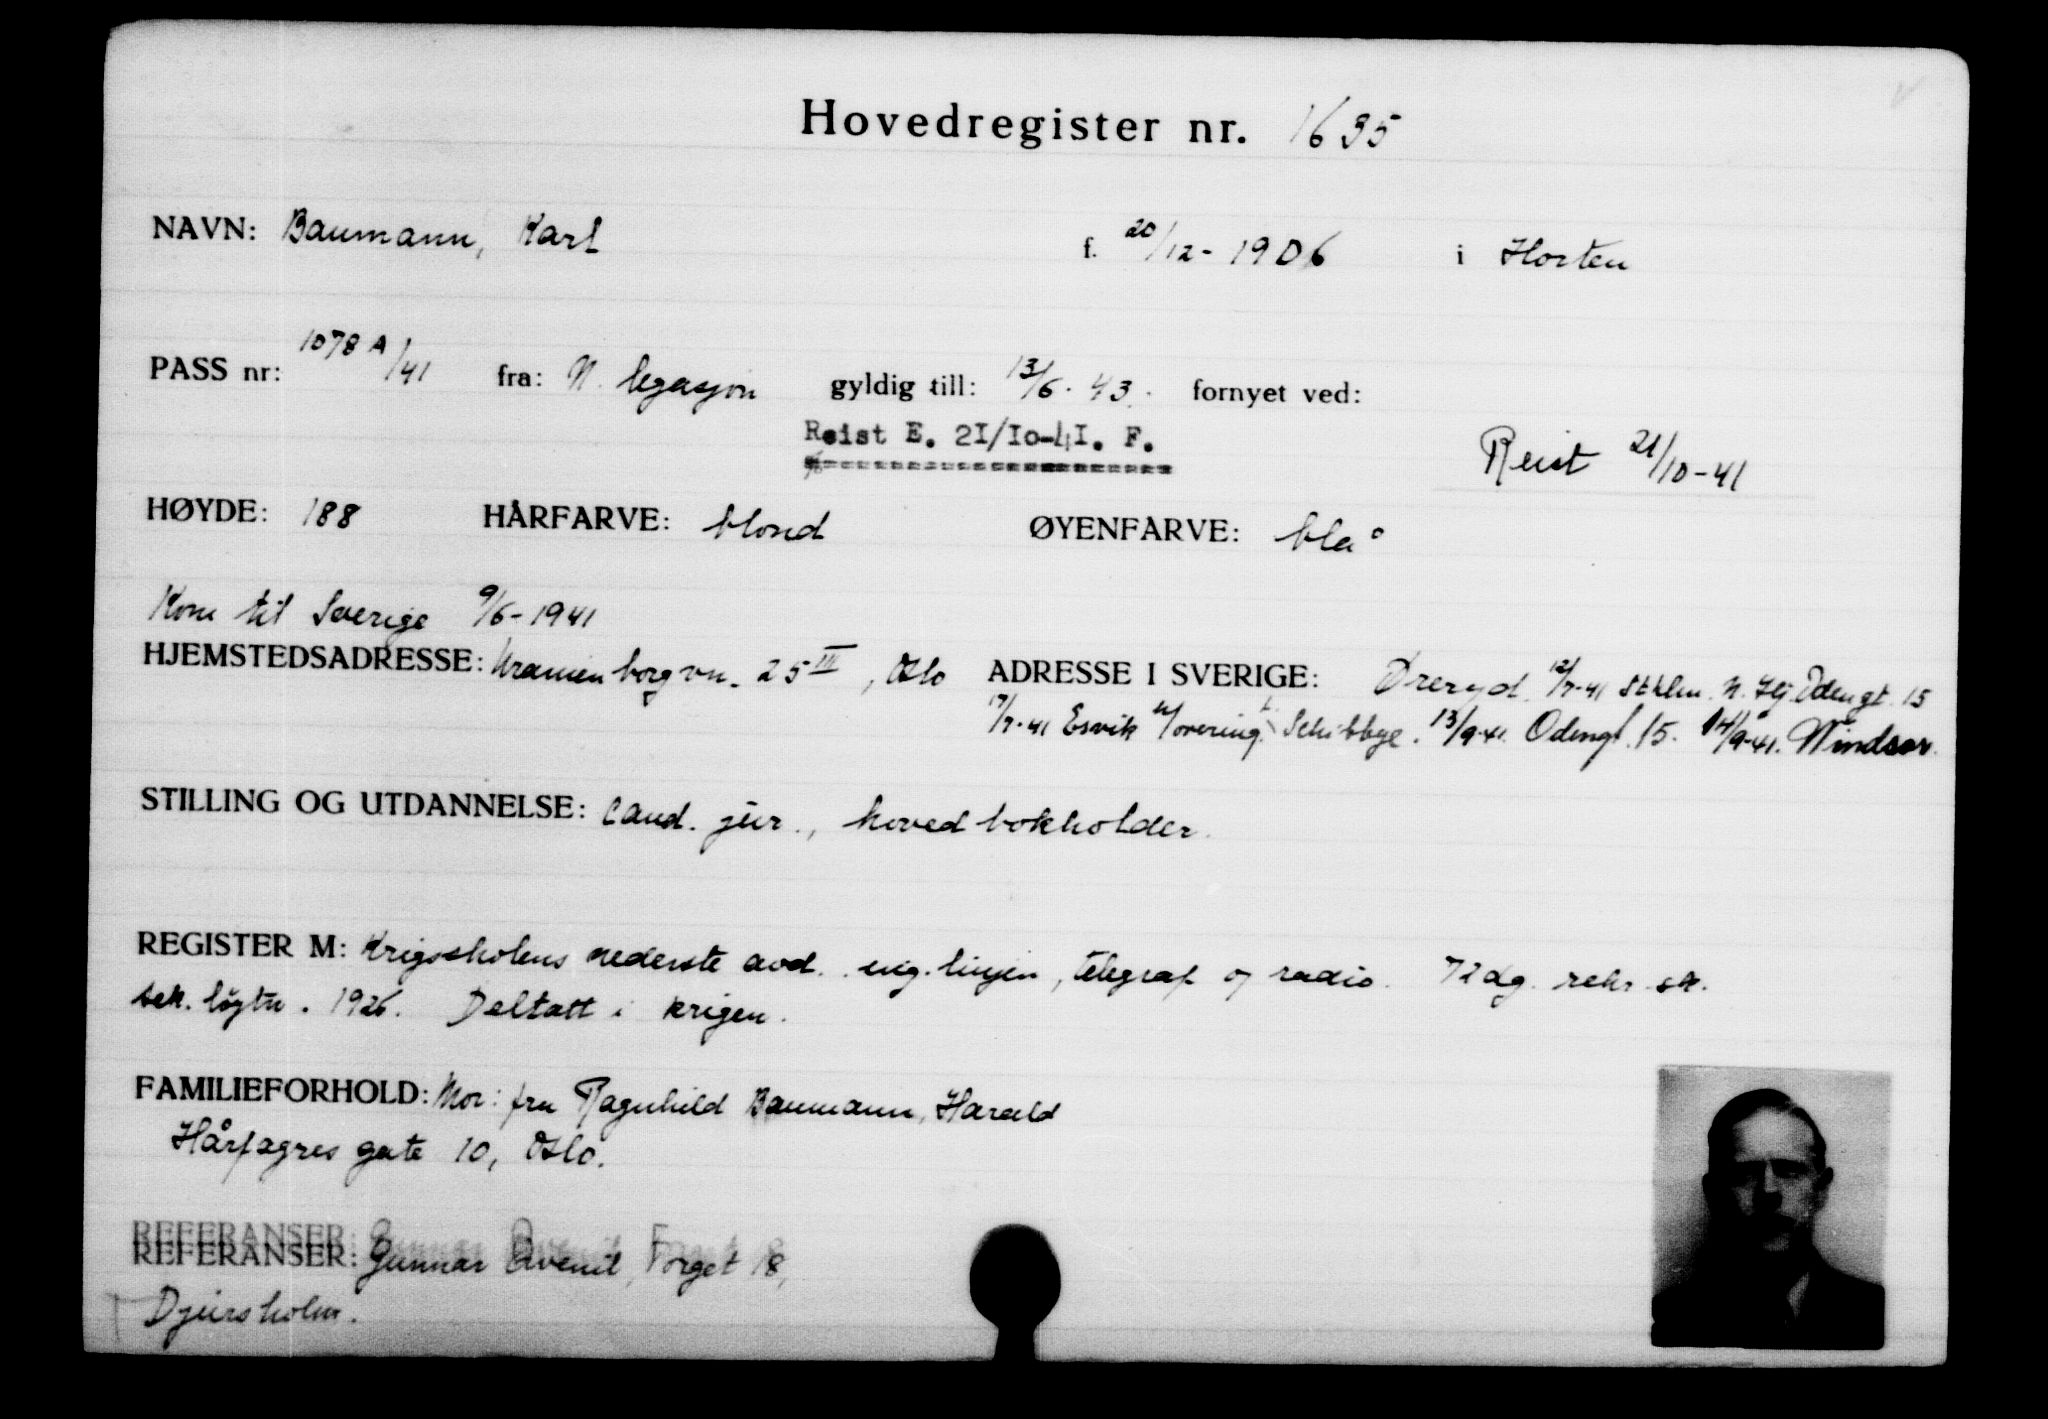 Hovedregister nr. 1635
NAVN: Baumann, Karl f. 20/12-1906 i Horten
PASS nr: 1078 A/41 fra: N. legasjon gyldig till: 13/6. 43. fornyet ved:
Reist E. 2I/Io-4I. F.
Reist 21/10-41
HØYDE: 188 HÅRFARVE: blond ØYENFARVE: blå
Kom til Sverige 9/6-1941
HJEMSTEDSADRESSE: Uranienborgvn. 25 III, Oslo ADRESSE I SVERIGE: Øreryd. 12/7-41 Sthlm. N. Hj. Odengt. 15
17/7-41 Esvik Schibbye. 13/9-41. Odengt. 15. 14/9-41. Windsor.
STILLING OG UTDANNELSE: Cand. jur., hovedbokholder.
REGISTER M: Krigsskolens nederste avd. ing. linjen, telegraf og radio. 72 dg. rekr. sk.
sek. løytn. 1926. Deltatt i krigen.
FAMILIEFORHOLD: Mor: fru Ragnhild Baumann, Harald
Hårfagres gate 10, Oslo.
REFERANSER:
REFERANSER: Gunnar Qvenil, Torget 18,
Djursholm.